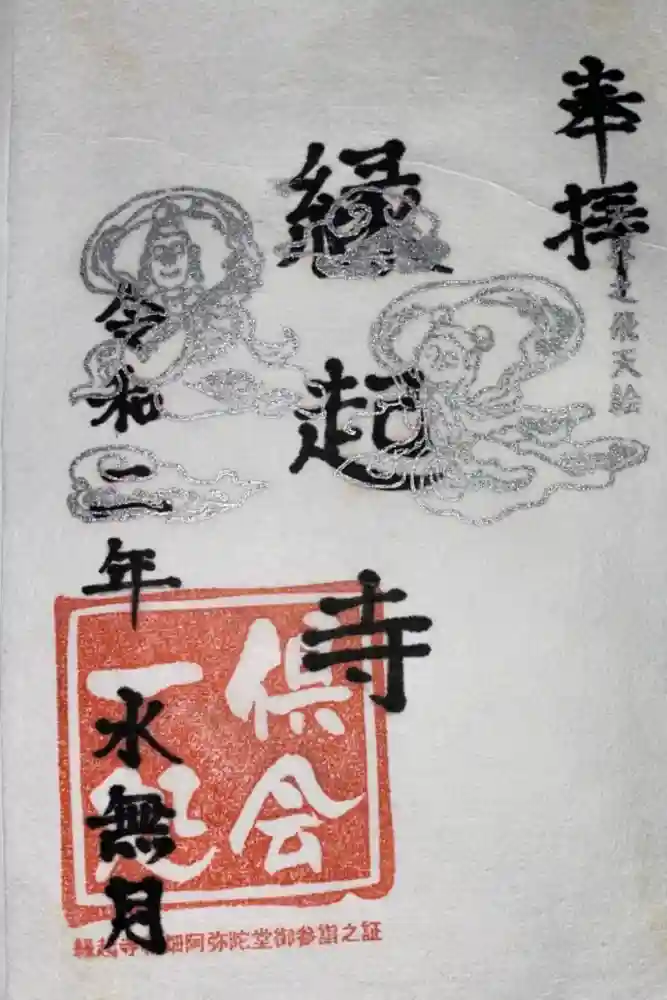 奉拝
之飛天絵
縁起寺
令和二年
水無月
倶会
一処
縁起寺 畑阿弥陀堂御参詣之証